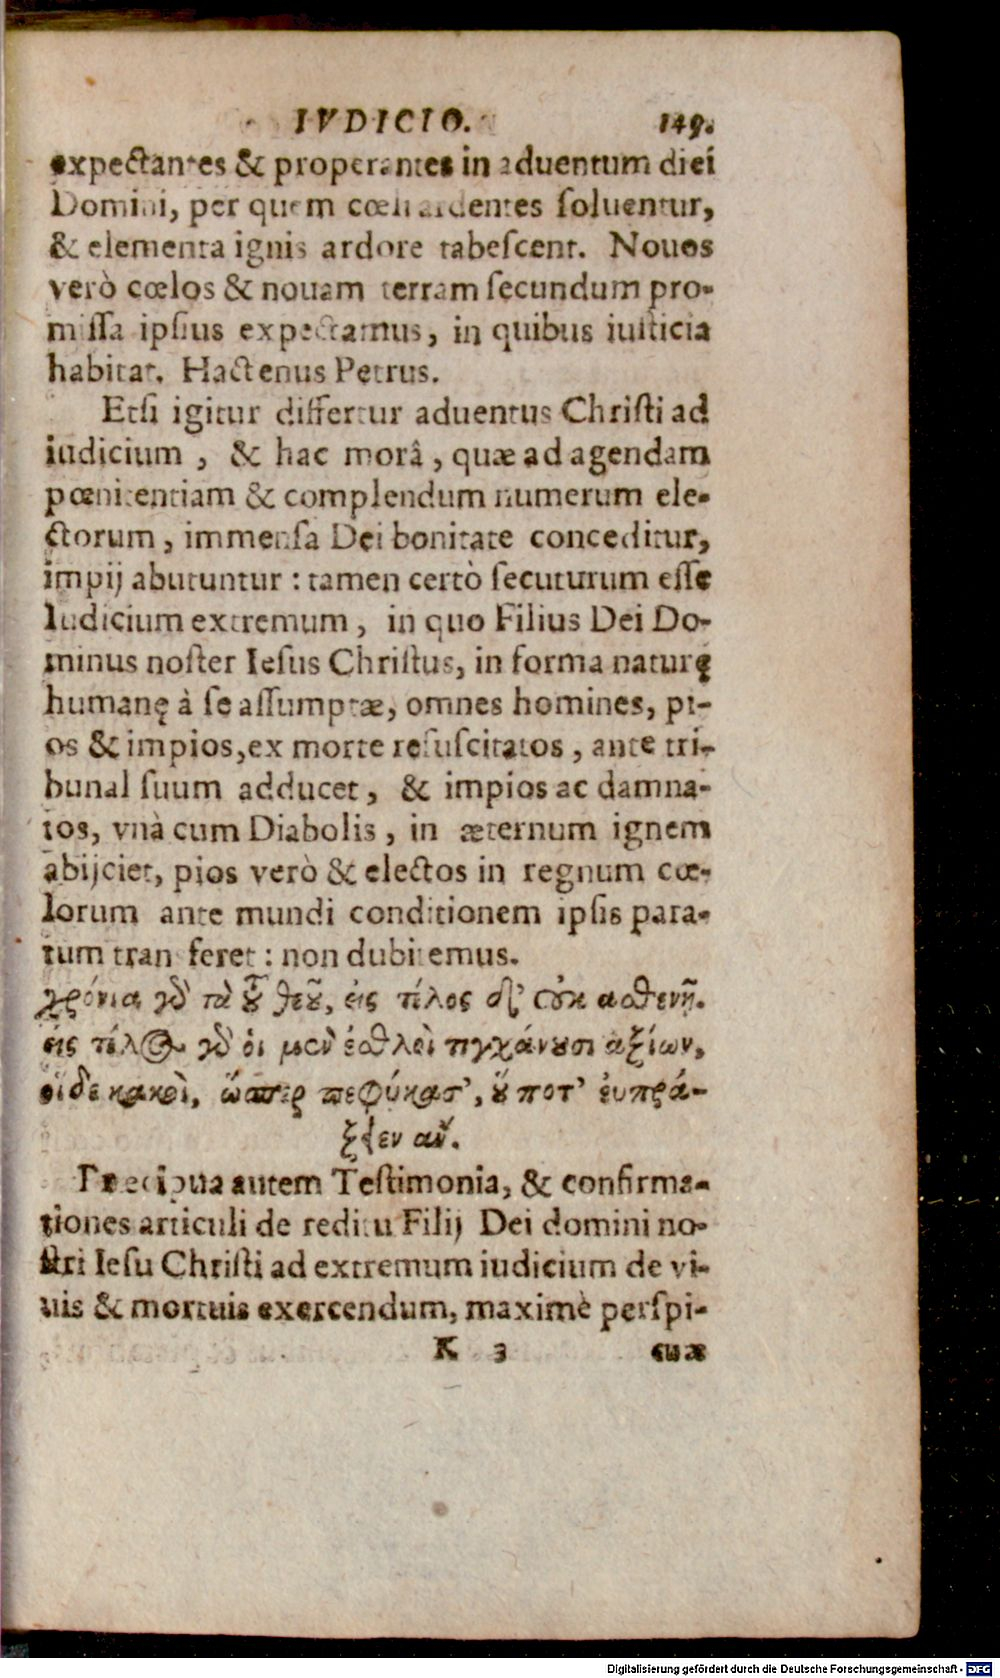 IVDICIO. 149.
expectantes & properantes in aduentum diei
Domini, per quem cœli ardentes ſoluentur,
& elementa ignis ardore tabeſcent. Nouos
verò cœlos & nouam terram ſecundum pro-
miſſa ipſius expectamus, in quibus iuſticia
habitat. Hactenus Petrus.
Etſi igitur differtur aduentus Chriſti ad
iudicium, & hac morâ, quæ ad agendam
pœnitentiam & complendum numerum ele-
ctorum, immenſa Dei bonitate conceditur,
impij abutuntur: tamen certò ſecuturum eſſe
Iudicium extremum, in quo Filius Dei Do-
minus noſter Ieſus Chriſtus, in forma naturę
humanę à ſe aſſumptæ, omnes homines, pi-
os & impios, ex morte reſuſcitatos, ante tri-
bunal ſuum adducet, & impios ac damna-
tos, vnà cum Diabolis, in æternum ignem
abijciet, pios verò & electos in regnum cœ-
lorum ante mundi conditionem ipſis para-
tum tran sferet: non dubitemus.
χρόνια γὰρ τὰ τοῦ θεοῦ, εἰς τέλος δ' οὐκ ἀσθενῆ.
εἰς τέλος γὰρ οἱ μὲν ἐσθλοὶ τυγχάνουσι ἀξίων,
οἱ δὲ κακοὶ, ὥσπερ πεφύκασ', οὔ ποτ' εὐπρά-
ξειεν ἄν.
Præcipua autem Teſtimonia, & confirma-
tiones articuli de reditu Filij Dei domini no-
ſtri Ieſu Chriſti ad extremum iudicium de vi-
uis & mortuis exercendum, maximè perſpi-
K 3 cuæ
Digitalisierung gefördert durch die Deutsche Forschungsgemeinschaft - DFG